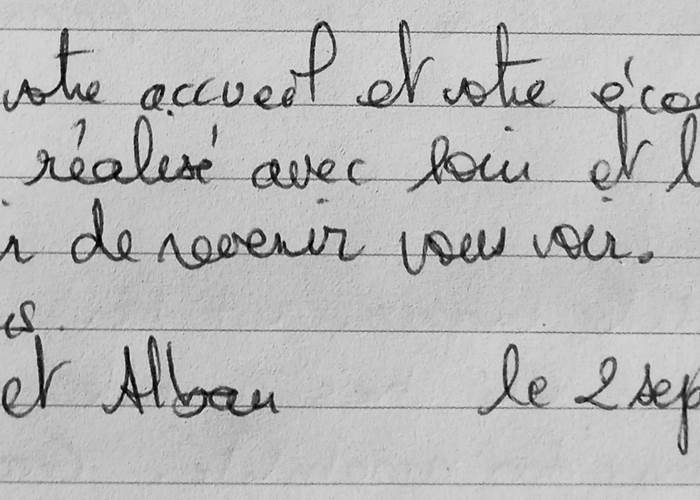 votre accueil et votre éco
réalisé avec soin et l
r de revenir vous voir.
es
et Alban le 2 sep